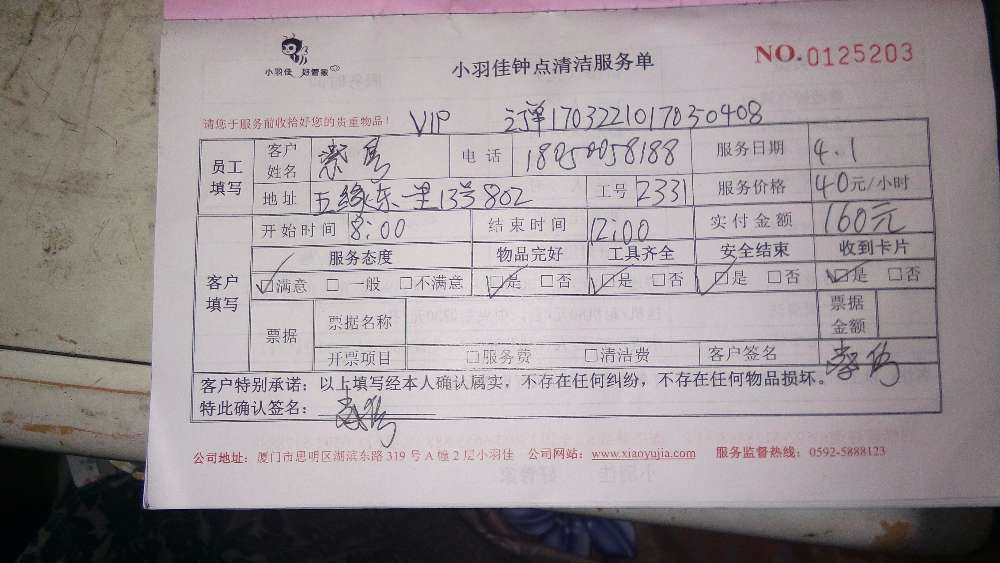 小羽佳 好管家
小羽佳钟点清洁服务单
NO.0125203
请您于服务前收拾好您的贵重物品！ VIP 订单1703221017030408
员工填写 客户姓名 电话 18050058188 服务日期 4.1
地址 五缘东一里13号802 工号 2331 服务价格 40元/小时
客户填写 开始时间 8:00 结束时间 12:00 实付金额 160元
服务态度 物品完好 工具齐全 安全结束 收到卡片
☑满意 □一般 □不满意 ☑是 □否 ☑是 □否 ☑是 □否 ☑是 □否
票据 票据名称 票据金额
开票项目 □服务费 □清洁费 客户签名
客户特别承诺：以上填写经本人确认属实，不存在任何纠纷，不存在任何物品损坏。
特此确认签名：
公司地址：厦门市思明区湖滨东路319号A幢2层小羽佳 公司网站：www.xiaoyujia.com 服务监督热线：0592-5888123